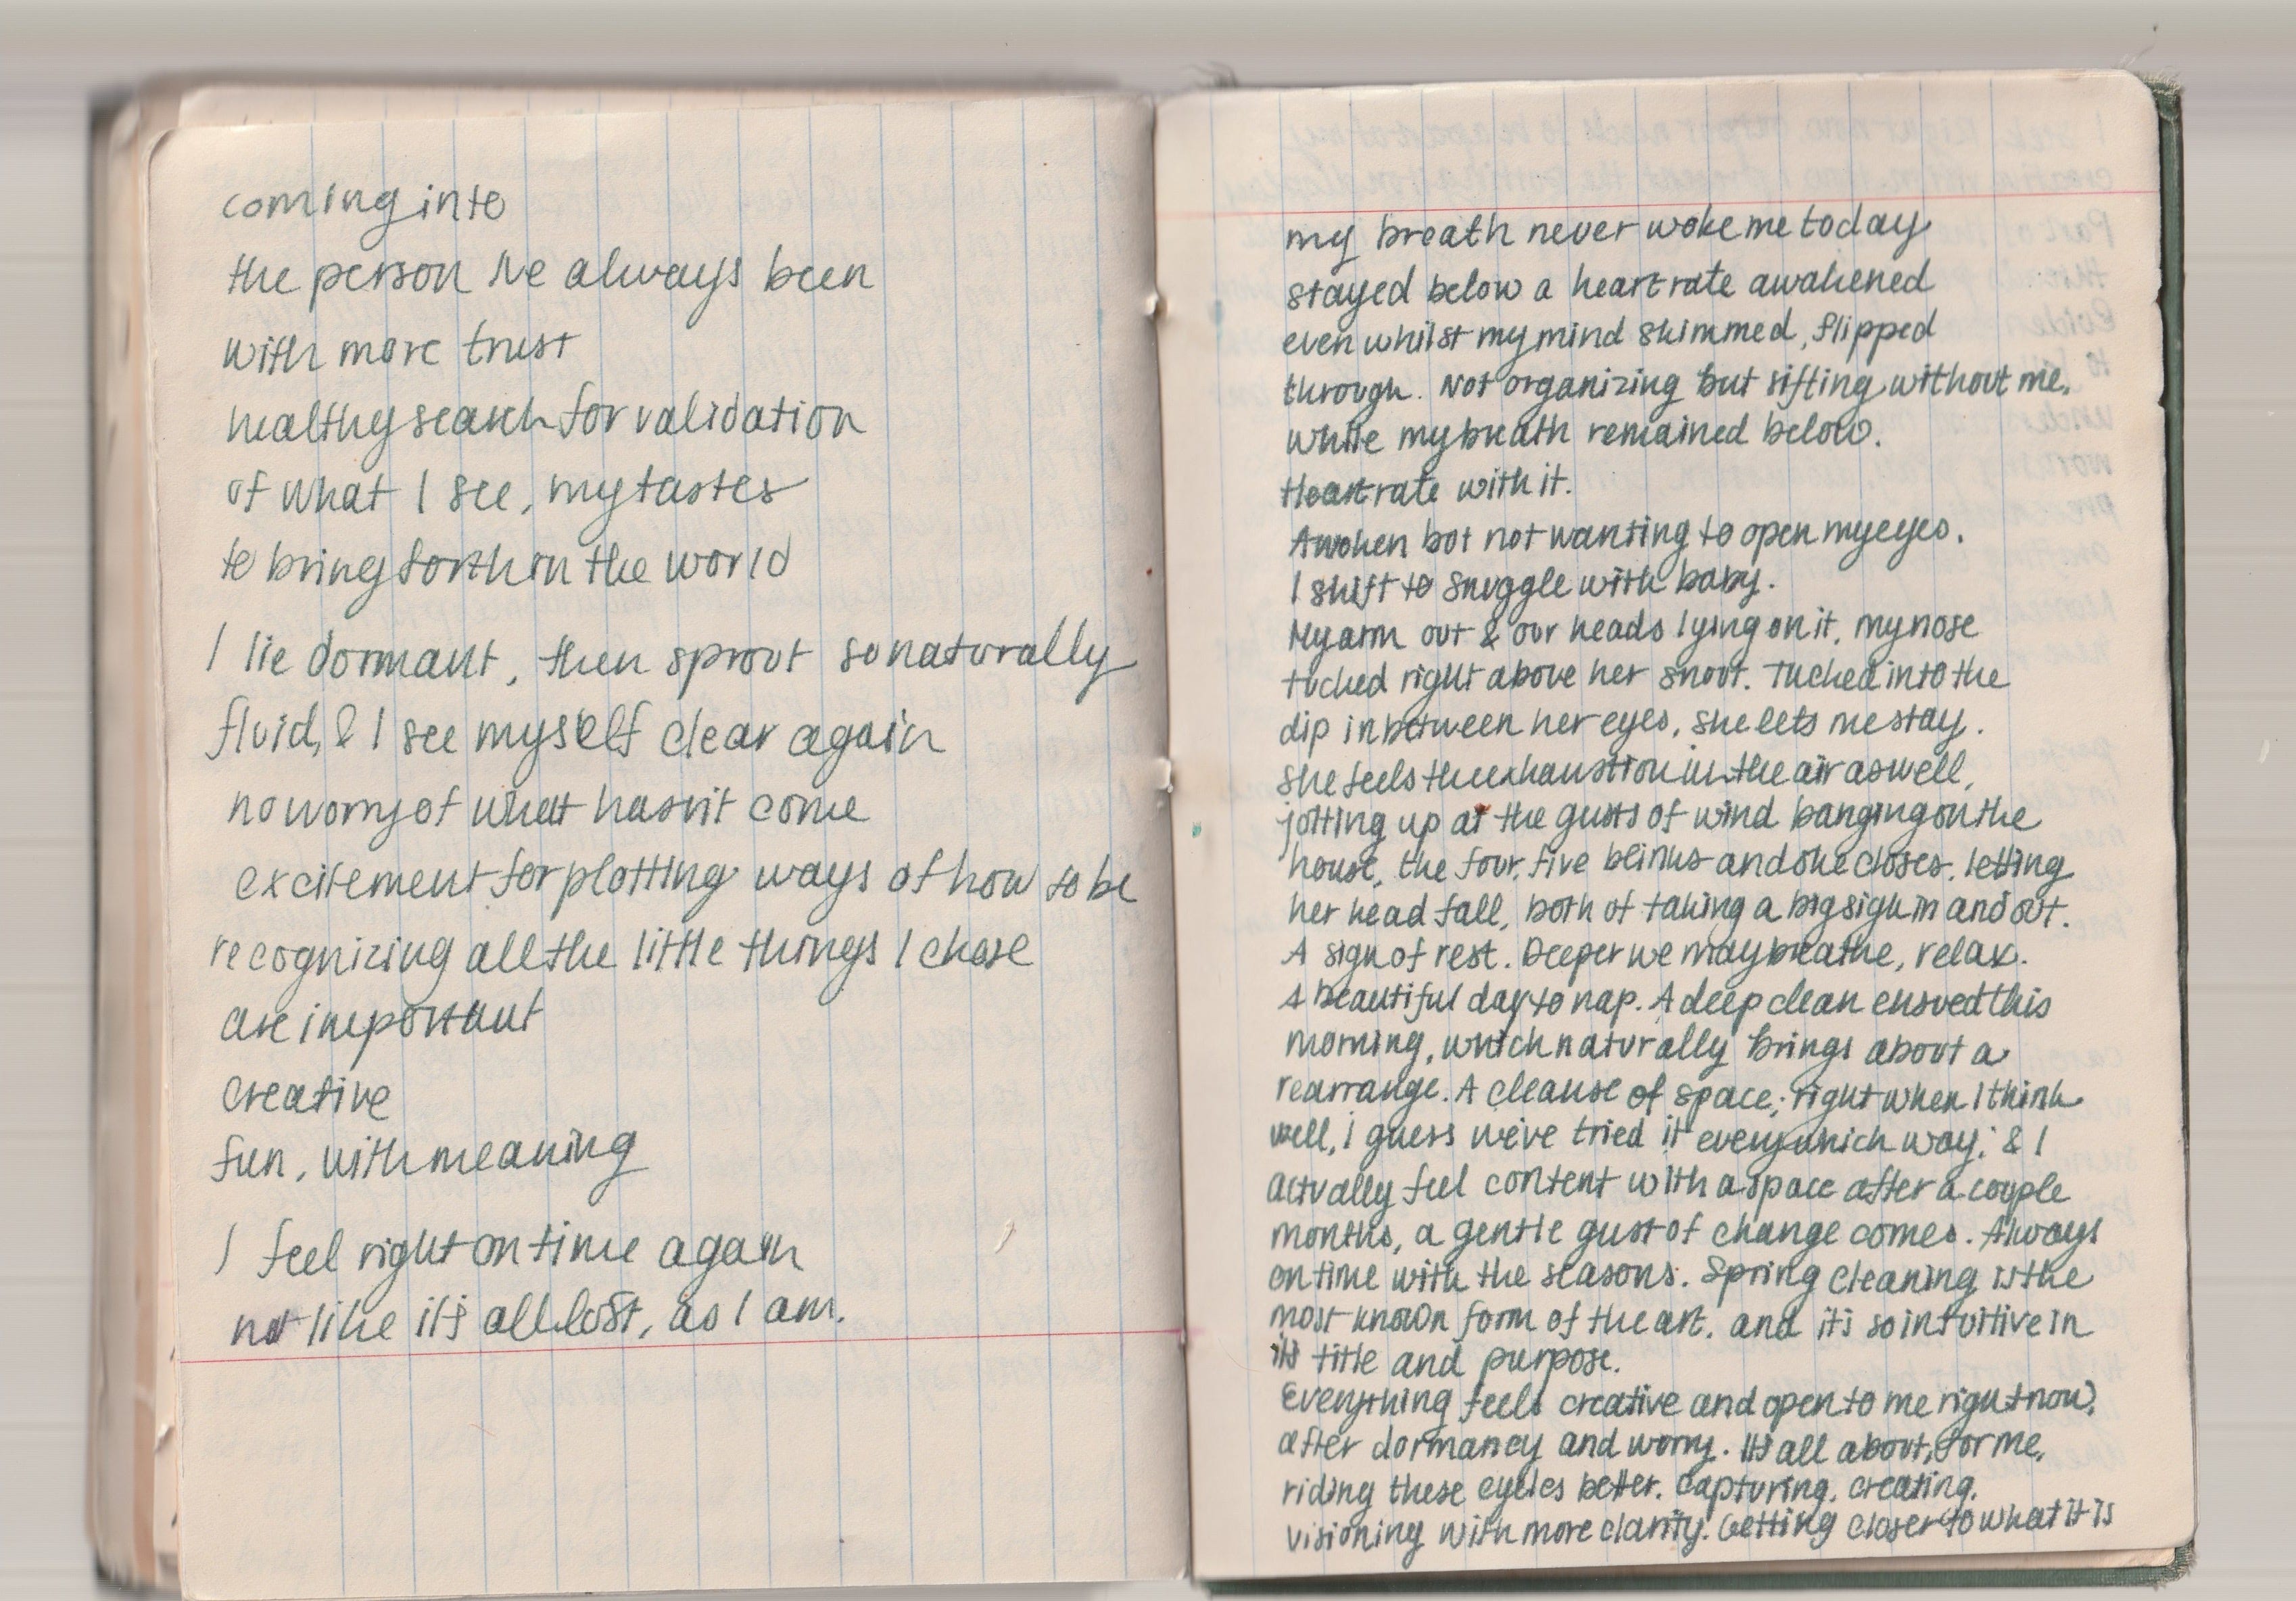 coming into
the person I've always been
with more trust
healthy search for validation
of what I see, my tastes
to bring forth in the world
I lie dormant, then sprout so naturally
fluid, & I see myself clear again
no worry of what hasn't come
excitement for plotting ways of how to be
recognizing all the little things I chose
are important
creative
fun, with meaning
I feel right on time again
not like it's all lost, as I am.
my breath never woke me today
stayed below a heart rate awakened
even whilst my mind skimmed, flipped
through. Not organizing but sifting without me,
while my breath remained below.
Heart rate with it.
Awoken but not wanting to open my eyes.
I shift to snuggle with baby.
My arm out & our heads lying on it, my nose
tucked right above her snout. Tucked into the
dip in between her eyes, she lets me stay.
she feels the exhaustion in the air as well,
jotting up at the gusts of wind banging on the
house, the four, five blinks and she closes, letting
her head fall, both of taking a big sigh in and out.
A sign of rest. Deeper we may breathe, relax.
A beautiful day to nap. A deep clean ensued this
morning, which naturally brings about a
rearrange. A cleanse of space; right when I think
well, i guess we've tried it every which way; & I
actually feel content with a space after a couple
months, a gentle gust of change comes. Always
on time with the seasons. Spring cleaning is the
most known form of the art. and it's so intuitive in
its title and purpose.
Everything feels creative and open to me right now,
after dormancy and worry. It's all about, for me,
riding these cycles better. Capturing, creating,
visioning with more clarity. Getting closer to what it is